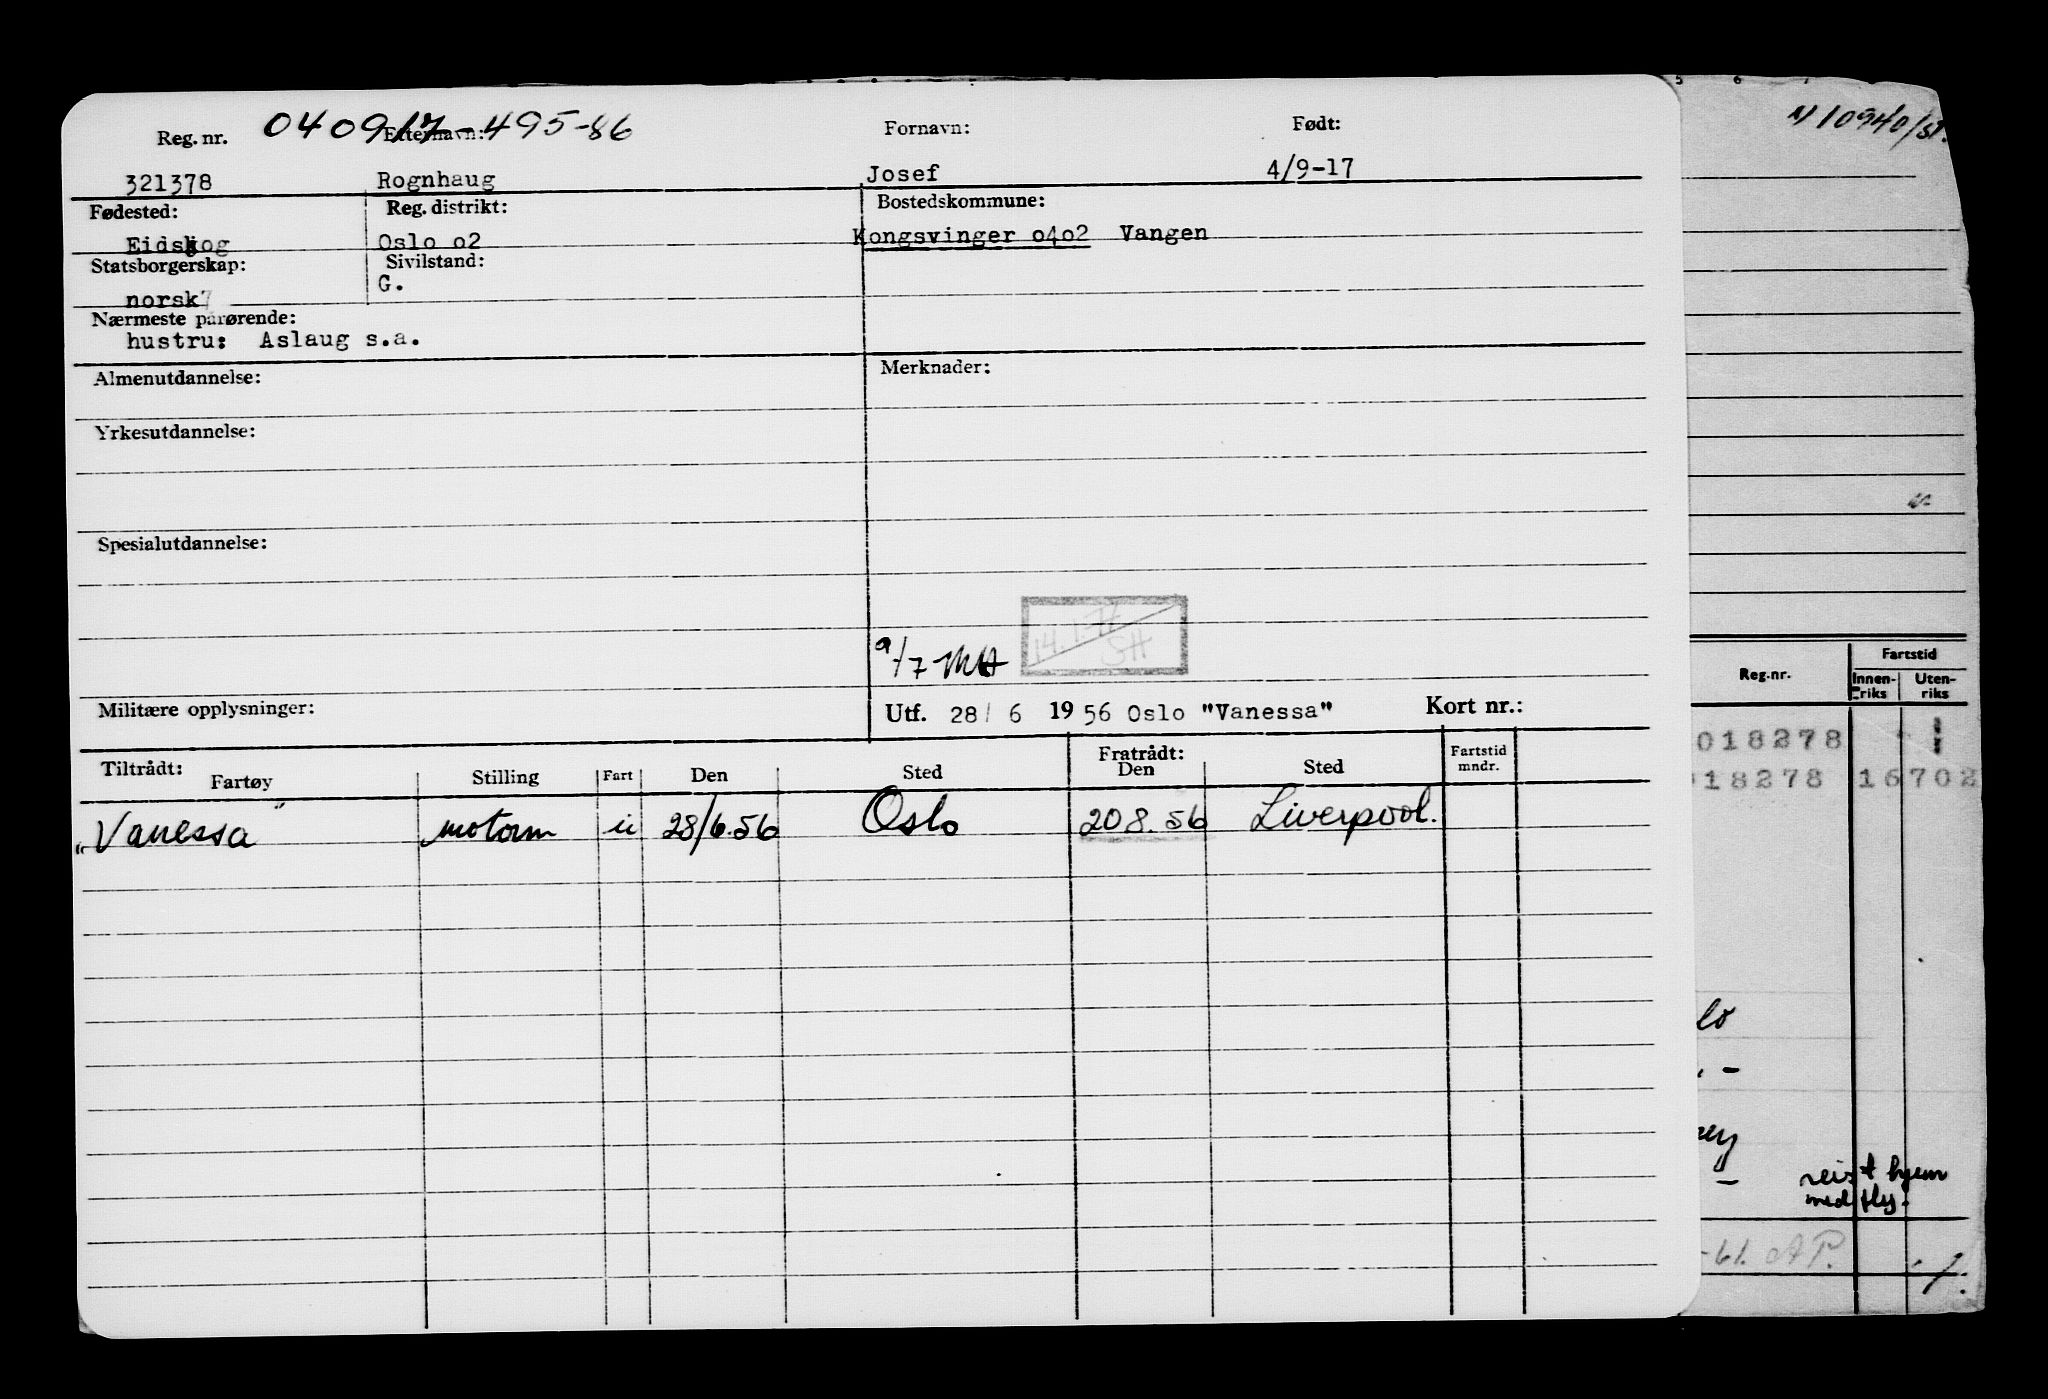 040917-495-86
Reg. nr. Etternavn: Fornavn: Født:
321378 Rognhaug Josef 4/9-17
Fødested: Reg. distrikt: Bostedskommune:
Eidskog Oslo o2 Kongsvinger o4o2 Vangen
Statsborgerskap: Sivilstand:
norsk G.
Nærmeste pårørende:
hustru: Aslaug s.a.
Almenutdannelse: Merknader:
Yrkesutdannelse:
Spesialutdannelse:
9/7 MH
SH
Militære opplysninger: Utf. 28/ 6 19 56 Oslo "Vanessa" Kort nr.:
Tiltrådt: Fratrådt: Fartstid
Fartøy Stilling Fart Den Sted Den Sted mndr.
"Vanessa" motorm u 28/6.56 Oslo 20 8. 56 Liverpool.
5 6 7
Fartstid
Reg.nr. Innen- Uten-
riks riks
018278
18278 16702
lo
reist hjem
med fly.
-61. AP.